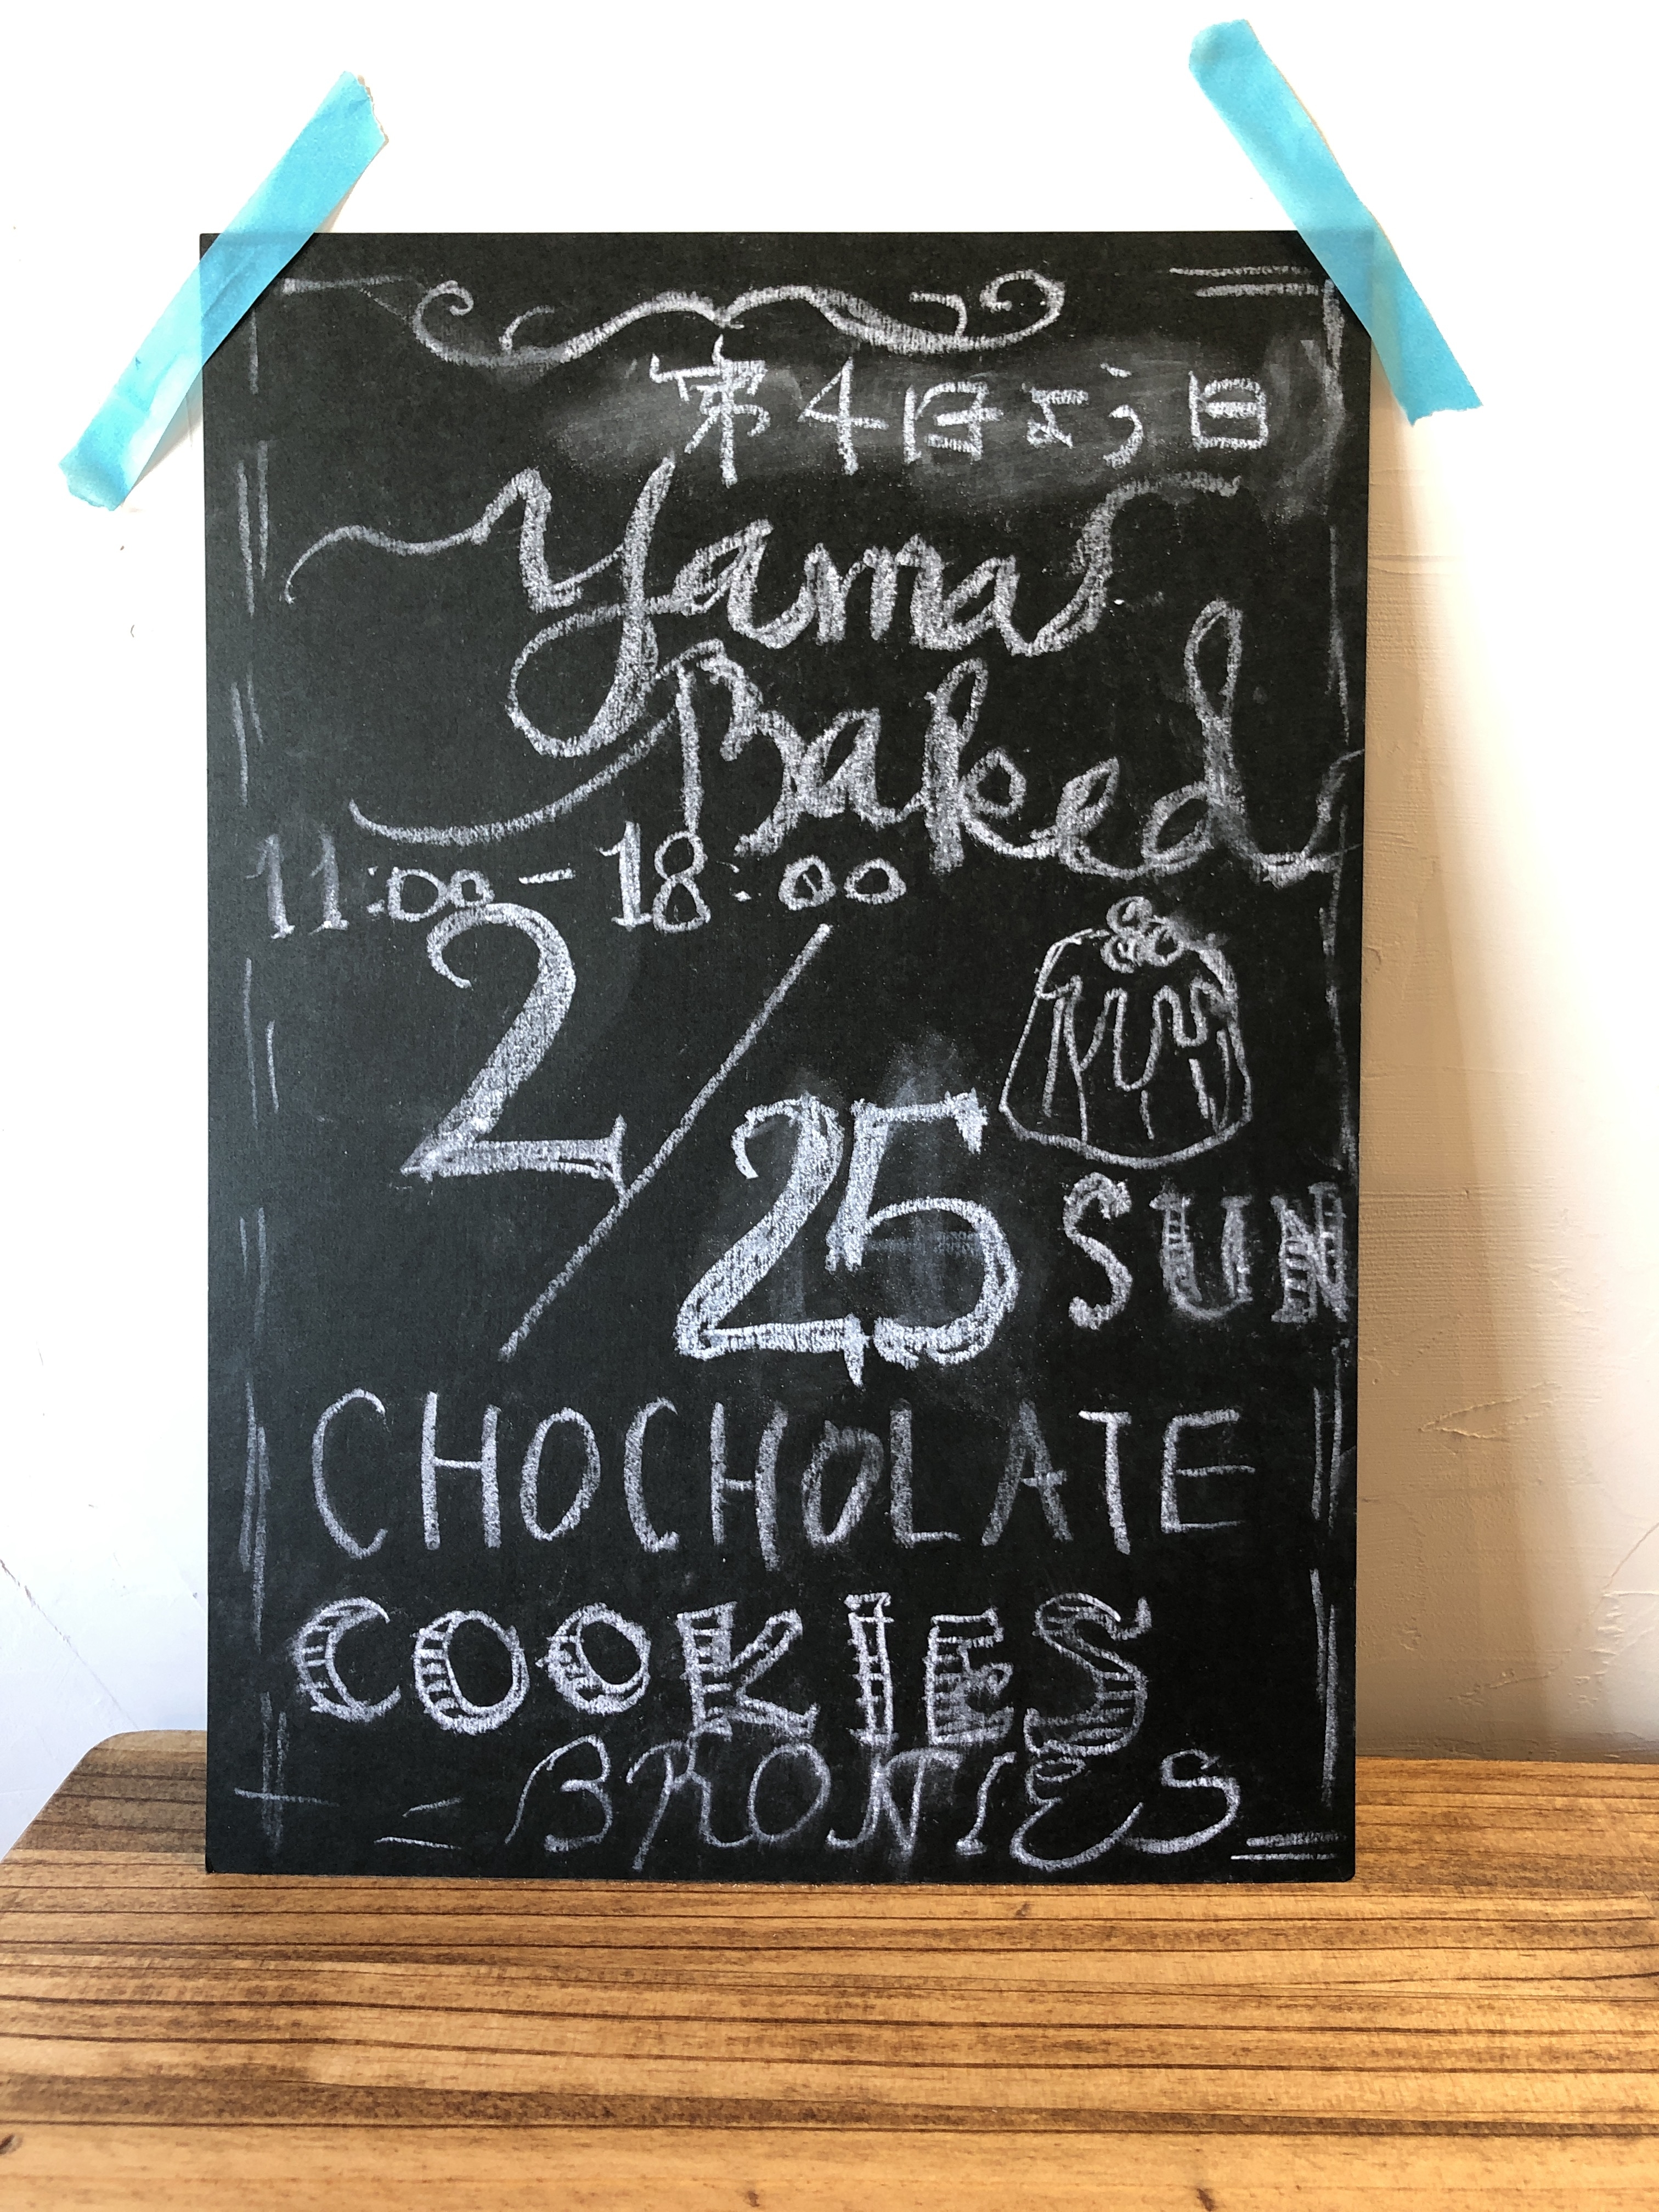 第4日よう日
Yamas
Baked
11:00-18:00
2/25 SUN
CHOCHOLATE
COOKIES
BRONIES